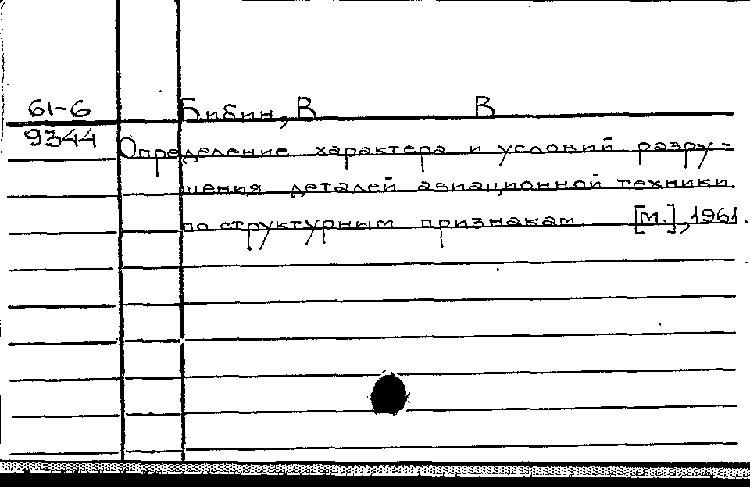 61-6
Бибин, В В
9344
Определение характера и условий разру-
шения деталей авиационной техники
по структурным признакам [М.], 1961.